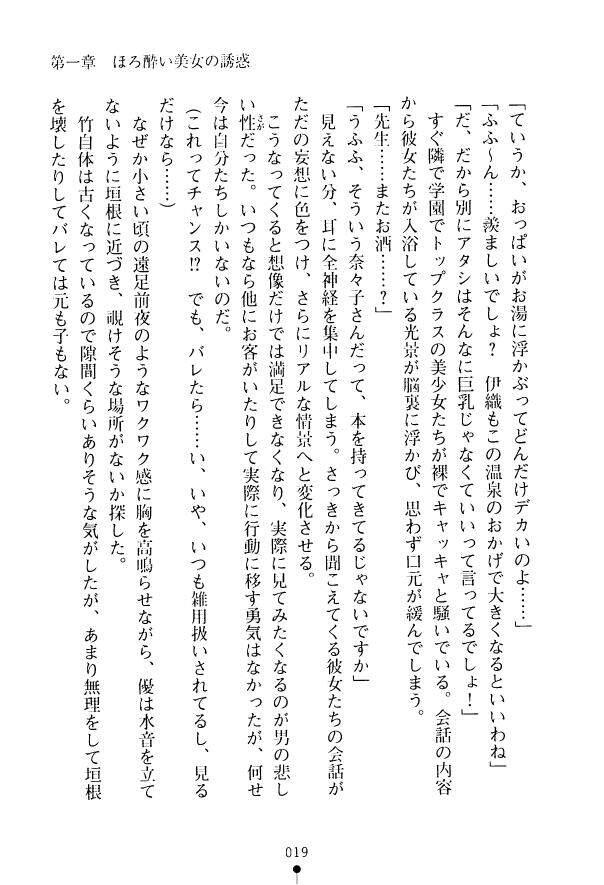 第一章　ほろ酔い美女の誘惑
「ていうか、おっぱいがお湯に浮かぶってどんだけデカいのよ……」
「ふふ〜ん……羨ましいでしょ？　伊織もこの温泉のおかげで大きくなるといいわね」
「だ、だから別にアタシはそんなに巨乳じゃなくていいって言ってるでしょ！」
すぐ隣で学園でトップクラスの美少女たちが裸でキャッキャと騒いでいる。会話の内容
から彼女たちが入浴している光景が脳裏に浮かび、思わず口元が緩んでしまう。
「先生……またお酒……？」
「うふふ、そういう奈々子さんだって、本を持ってきてるじゃないですか」
見えない分、耳に全神経を集中してしまう。さっきから聞こえてくる彼女たちの会話が
ただの妄想に色をつけ、さらにリアルな情景へと変化させる。
こうなってくると想像だけでは満足できなくなり、実際に見てみたくなるのが男の悲し
い性さがだった。いつもなら他にお客がいたりして実際に行動に移す勇気はなかったが、何せ
今は自分たちしかいないのだ。
（これってチャンス!?　でも、バレたら……い、いや、いつも雑用扱いされてるし、見る
だけなら……）
なぜか小さい頃の遠足前夜のようなワクワク感に胸を高鳴らせながら、優は水音を立て
ないように垣根に近づき、覗けそうな場所がないか探した。
竹自体は古くなっているので隙間くらいありそうな気がしたが、あまり無理をして垣根
を壊したりしてバレては元も子もない。
019